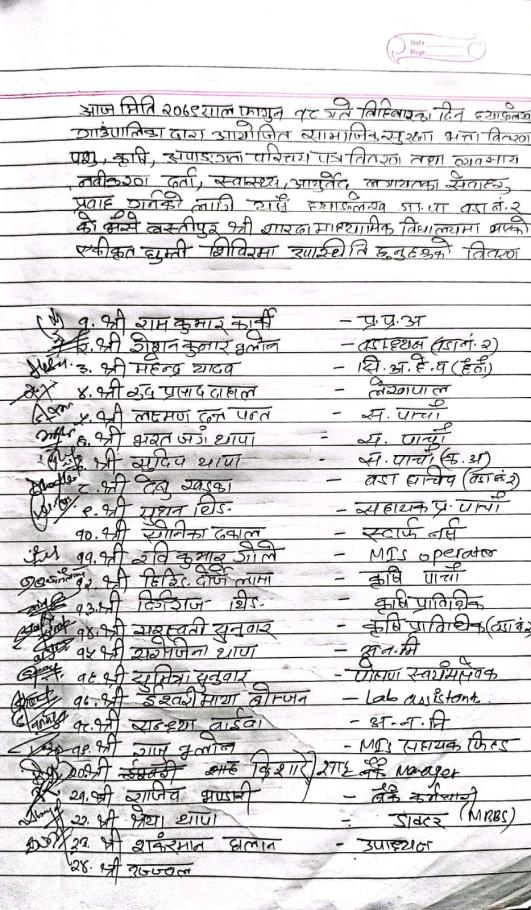 Date
Page
आज मिति २०७९ साल फागुन १८ गते बिहिबारका दिन
गाउँपालिका द्वारा आयोजित सामाजिक सुरक्षा भत्ता वितरण
पशु, कृषि, अपाङ्गता परिचय पत्र वितरण तथा व्यवसाय
नवीकरण दर्ता, स्वास्थ्य, आयुर्वेद लगायतका सेवाहरु
प्रवाह गर्नको लागि यसै गा.पा वडा नं. २
को भसे वस्तीपुर श्री शारदा माध्यामिक विद्यालयमा भएको
एकीकृत घुम्ती शिविरमा उपस्थिति हुनुहुनेको विवरण
१. श्री राम कुमार कार्की - प्र.प्र.अ
२. श्री कुमार - वडाध्यक्ष (वडा नं. २)
३. श्री महेन्द्र यादव - सि.अ.हे.व
४. श्री रुद्र प्रसाद दाहाल - लेखापाल
५. श्री लक्ष्मण दत्त पन्त - स. पाचौँ
६. श्री भरत जंग थापा - स. पाचौँ
७. श्री सुदिप थापा - स. पाचौँ (क.अ)
८. श्री खड्का - वडा सचिव (वडा नं. २)
९. श्री थिङ - सहायक प्र. पाचौँ
१०. श्री ढकाल - स्टाफ नर्ष
११. श्री रवि कुमार गोले - MIS operator
१२. श्री दोर्जे लामा - कृषि पाचौँ
१३. श्री थिङ - कृषि प्राविधिक
१४. श्री सरस्वती सुनुवार - कृषि प्राविधिक (वडा नं. २)
१५. श्री थापा - अ.न.मि
१६. श्री सुमित्रा सुनुवार - पोषण स्वयंमसेवक
१७. श्री ईश्वरी माया बोम्जन - Lab assistant
१८. श्री सन्ध्या वाईबा - अ.न.मि
१९. श्री - MIS सहायक फिल्ड
२०. श्री किशोर शाह - बैंक Manager
२१. श्री राजिव भण्डारी - बैंक कर्मचारी
२२. श्री श्रेया थापा - डाक्टर (MBBS)
२३. श्री शंकरमान घलान - उपाध्यक्ष
२४. श्री उज्ज्वल